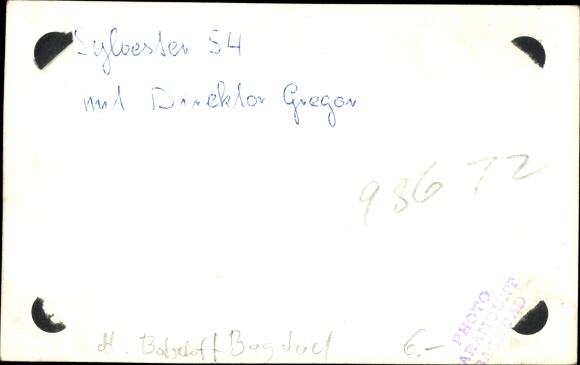 Sylvester 54
mit Direktor Gregor
98672
dt. Botschaft Bagdad
6.-
PHOTO
ARAMOUNT
BAGHDAD